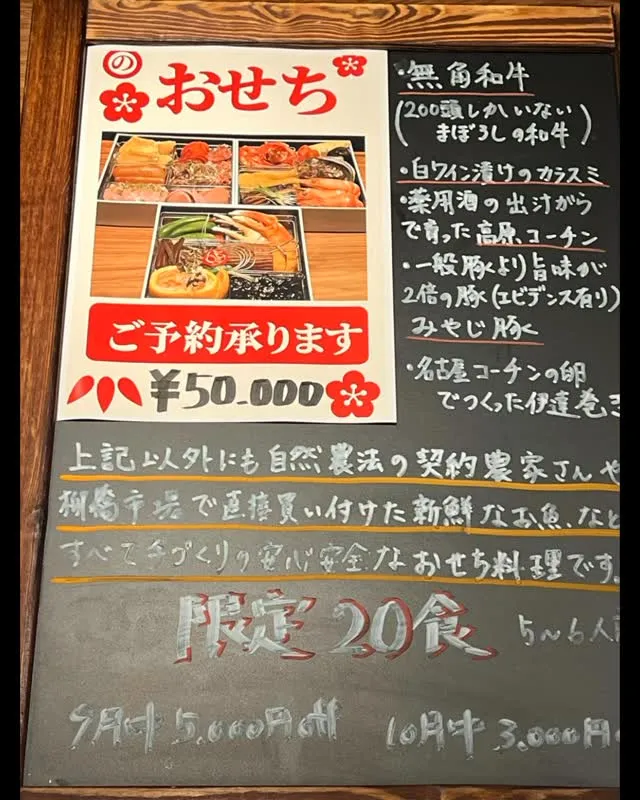 の
おせち
ご予約承ります
¥50.000
・無角和牛
(200頭しかいない
まぼろしの和牛)
・白ワイン漬けのカラスミ
・薬用酒の出汁がら
で育った高原コーチン
・一般豚より旨味が
2倍の豚(エビデンス有り)
みやじ豚
・名古屋コーチンの卵
でつくった伊達巻き
上記以外にも自然農法の契約農家さんや
柳橋市場で直接買い付けた新鮮なお魚、など
すべて手づくりの安心安全なおせち料理です。
限定20食
5〜6人
9月中5.000円off
10月中3.000円